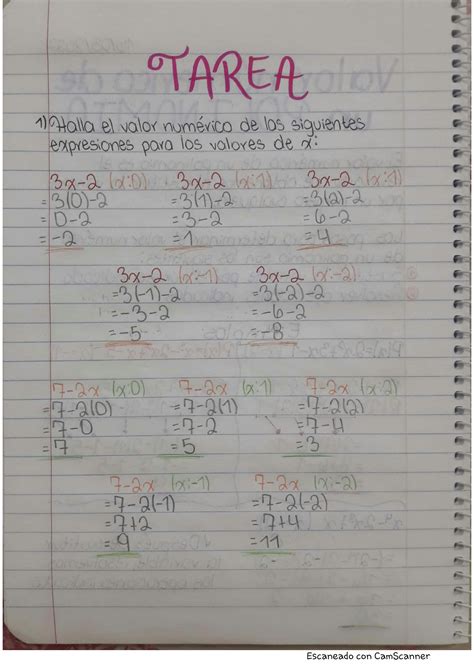 TAREA
1) Halla el valor numérico de las siguientes
expresiones para los valores de x:
3x-2 (x:0) 3x-2 (x:1) 3x-2 (x:1)
=3(0)-2 =3(1)-2 =3(2)-2
=0-2 =3-2 =6-2
=-2 =1 =4
3x-2 (x:-1) 3x-2 (x:-2)
=3(-1)-2 =3(-2)-2
=-3-2 =-6-2
=-5 =-8
7-2x (x:0) 7-2x (x:1) 7-2x (x:2)
=7-2(0) =7-2(1) =7-2(2)
=7-0 =7-2 =7-4
=7 =5 =3
7-2x (x:-1) 7-2x (x:-2)
=7-2(-1) =7-2(-2)
=7+2 =7+4
=9 =11
Escaneado con CamScanner